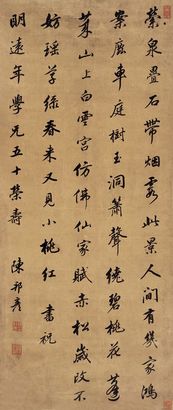 縈泉疊石帶烟霞此景人間有幾家鴻
案鹿車庭樹玉洞簫聲繞碧桃花蓬
萊山上白雲宮仿佛仙家賦赤松歲改不
妨瑶草綠春来又見小桃紅 書祝
明遠年學兄五十榮壽 陳邦彥